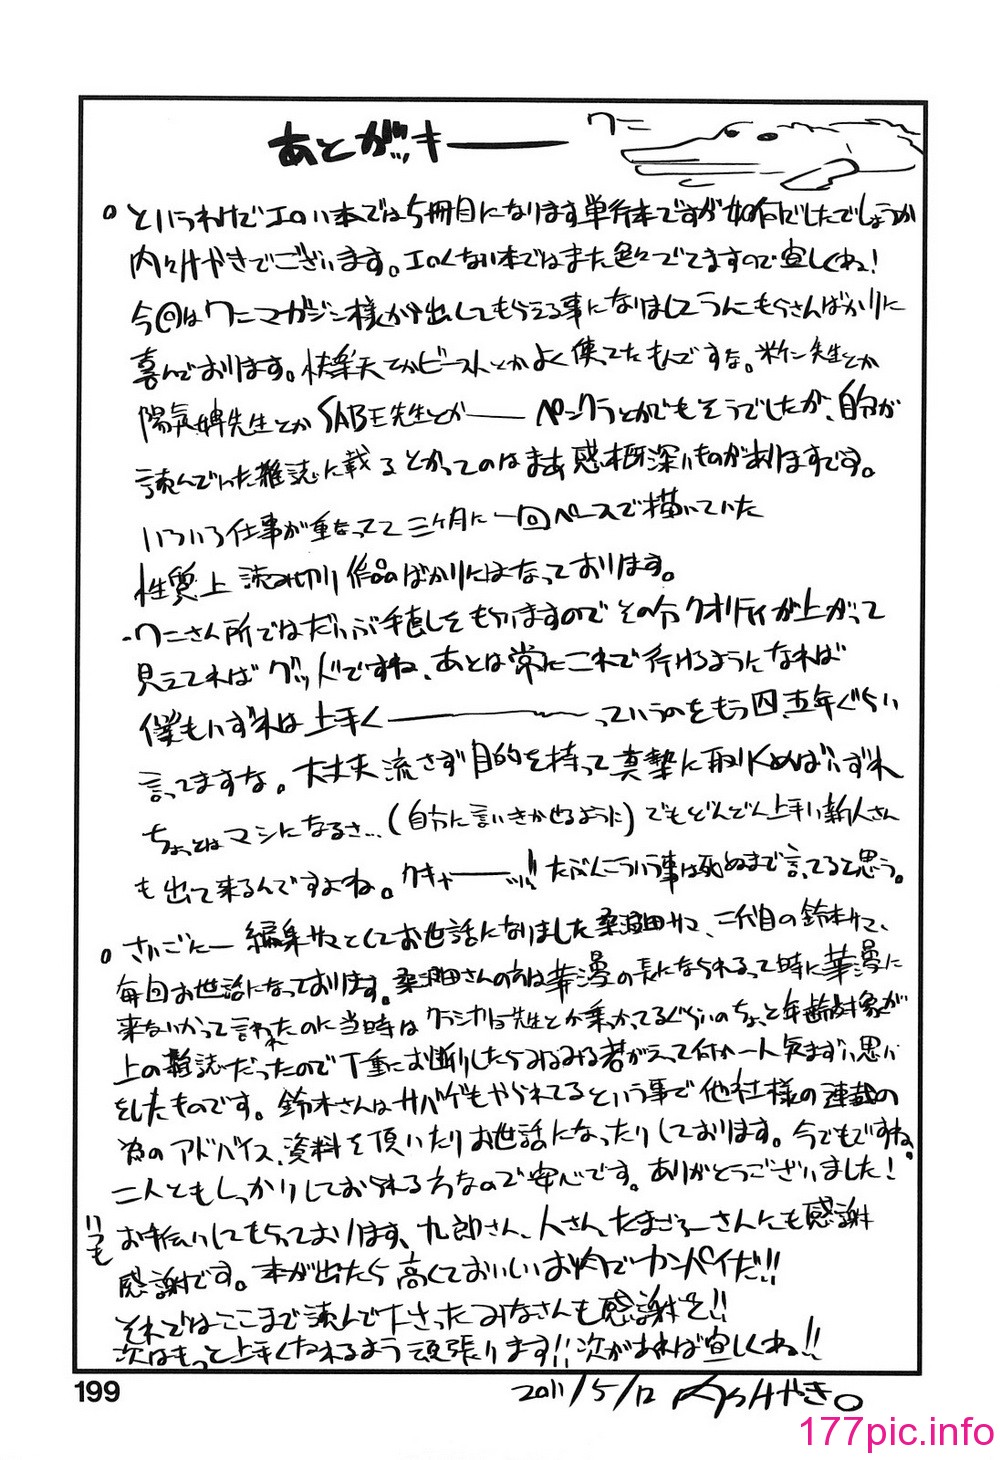 あとがッキー
ワニ
。というわけでエロい本では5冊目になります単行本ですが如何でしたでしょうか
内々けやきでございます。エロくない本ではまた色々でてますので宜しくね!
今回はワニマガジン様から出してもらえる事になりましてうんにもうさんばかりに
喜んでおります。快楽天とかビーストとかよく使ってたもんですな。米倉先生とか
陽気婢先生とかSABE先生とかーペンクラとかでもそうでしたが、自分が
読んでいた雑誌に載るとかってのはまあ感慨深いものがありますです。
いろいろ仕事が重なってて三ヶ月に一回ペースで描いていた
性質上読み切り作品ばかりにはなっております。
・ワニさん所ではだいぶ手直しをもらいますのでその分クオリティが上がって
見えてればグッドですね、あとは常にこれで行けるようになれば
僕もいずれは上手くーーっていうのをもう四、五年ぐらい
言ってますな。大丈夫流さず目的を持って真摯に取り組めばいずれ
ちょっとはマシになるさ…(自分に言いきかせるように)でもどんどん上手い新人さん
も出て来るんですよね。ウキャーーッ!!たぶんこういう事は死ぬまで言ってると思う。
。さいごにー編集サマとしてお世話になりました桑沼田サマ、二代目の鈴木サマ、
毎回お世話になっております。さんの方は華漫の長になられるって時に華漫に
来ないかって言われたのに当時はクジラックス先生とか乗っかってるぐらいのちょっと年齢対象が
上の雑誌だったので丁重にお断りしたらみるみる君がえって何か一人気まずい思い
をしたものです。鈴木さんはサバゲもやられてるという事で他社様の連載の
為のアドバイス、資料を頂いたりお世話になったりしております。今でもですね。
二人ともしっかりしておられる方なので安心です。ありがとうございました!
いつも
お手伝いしてもらっております、九郎さん、人さん、たまごろーさんにも感謝
感謝です。本が出たら高くておいしいお肉でカンパイだ!!
それではここまで読んで下さったみなさんも感謝ぞ!!
次はもっと上手くなれるよう頑張ります!!次があれば宜しくね!!
2011/5/12 内々けやき。
199
177pic.info